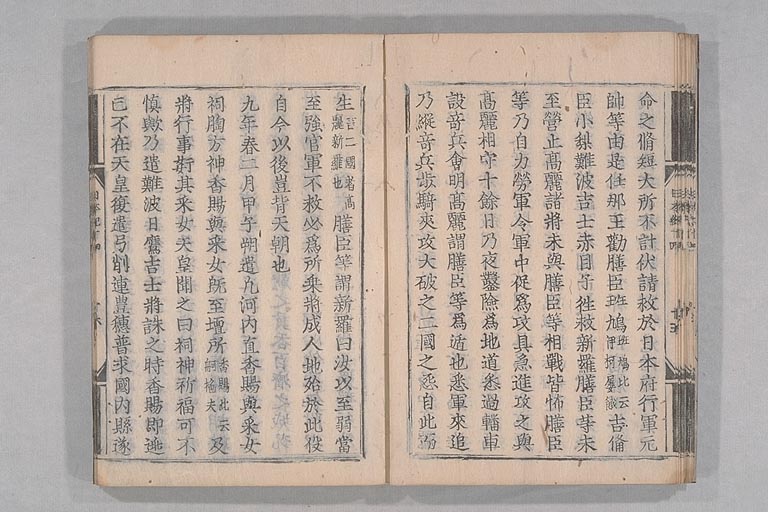 命之脩短大所不計伏請救於日本府行軍元
帥等由是任那王勸膳臣斑鳩斑鳩此云伊柯屢餓吉備
臣小梨難波吉士赤目子徃救新羅膳臣等未
至營止高麗諸將未與膳臣等相戰皆怖膳臣
等乃自力勞軍令軍中促爲攻具急進攻之與
高麗相守十餘日乃夜鑿險爲地道悉過輜車
設竒兵會明高麗謂膳臣等爲遁也悉軍來追
乃縱竒兵步騎夾攻大破之二國之怨自此而
生言二國者高麗新羅也膳臣等謂新羅曰汝以至弱當
至強官軍不救必爲所乗將成人地殆於此役
自今以後豈背天朝也
九年春二月甲子朔遣凡河內直香賜與采女
祠胸方神香賜與采女旣至壇所香賜此云舸拕夫及
將行事姧其采女天皇聞之曰祠神祈福可不
慎歟乃遣難波日鷹吉士將誅之時香賜即逃
亡不在天皇復遣弓削連豊穗普求國內縣遂